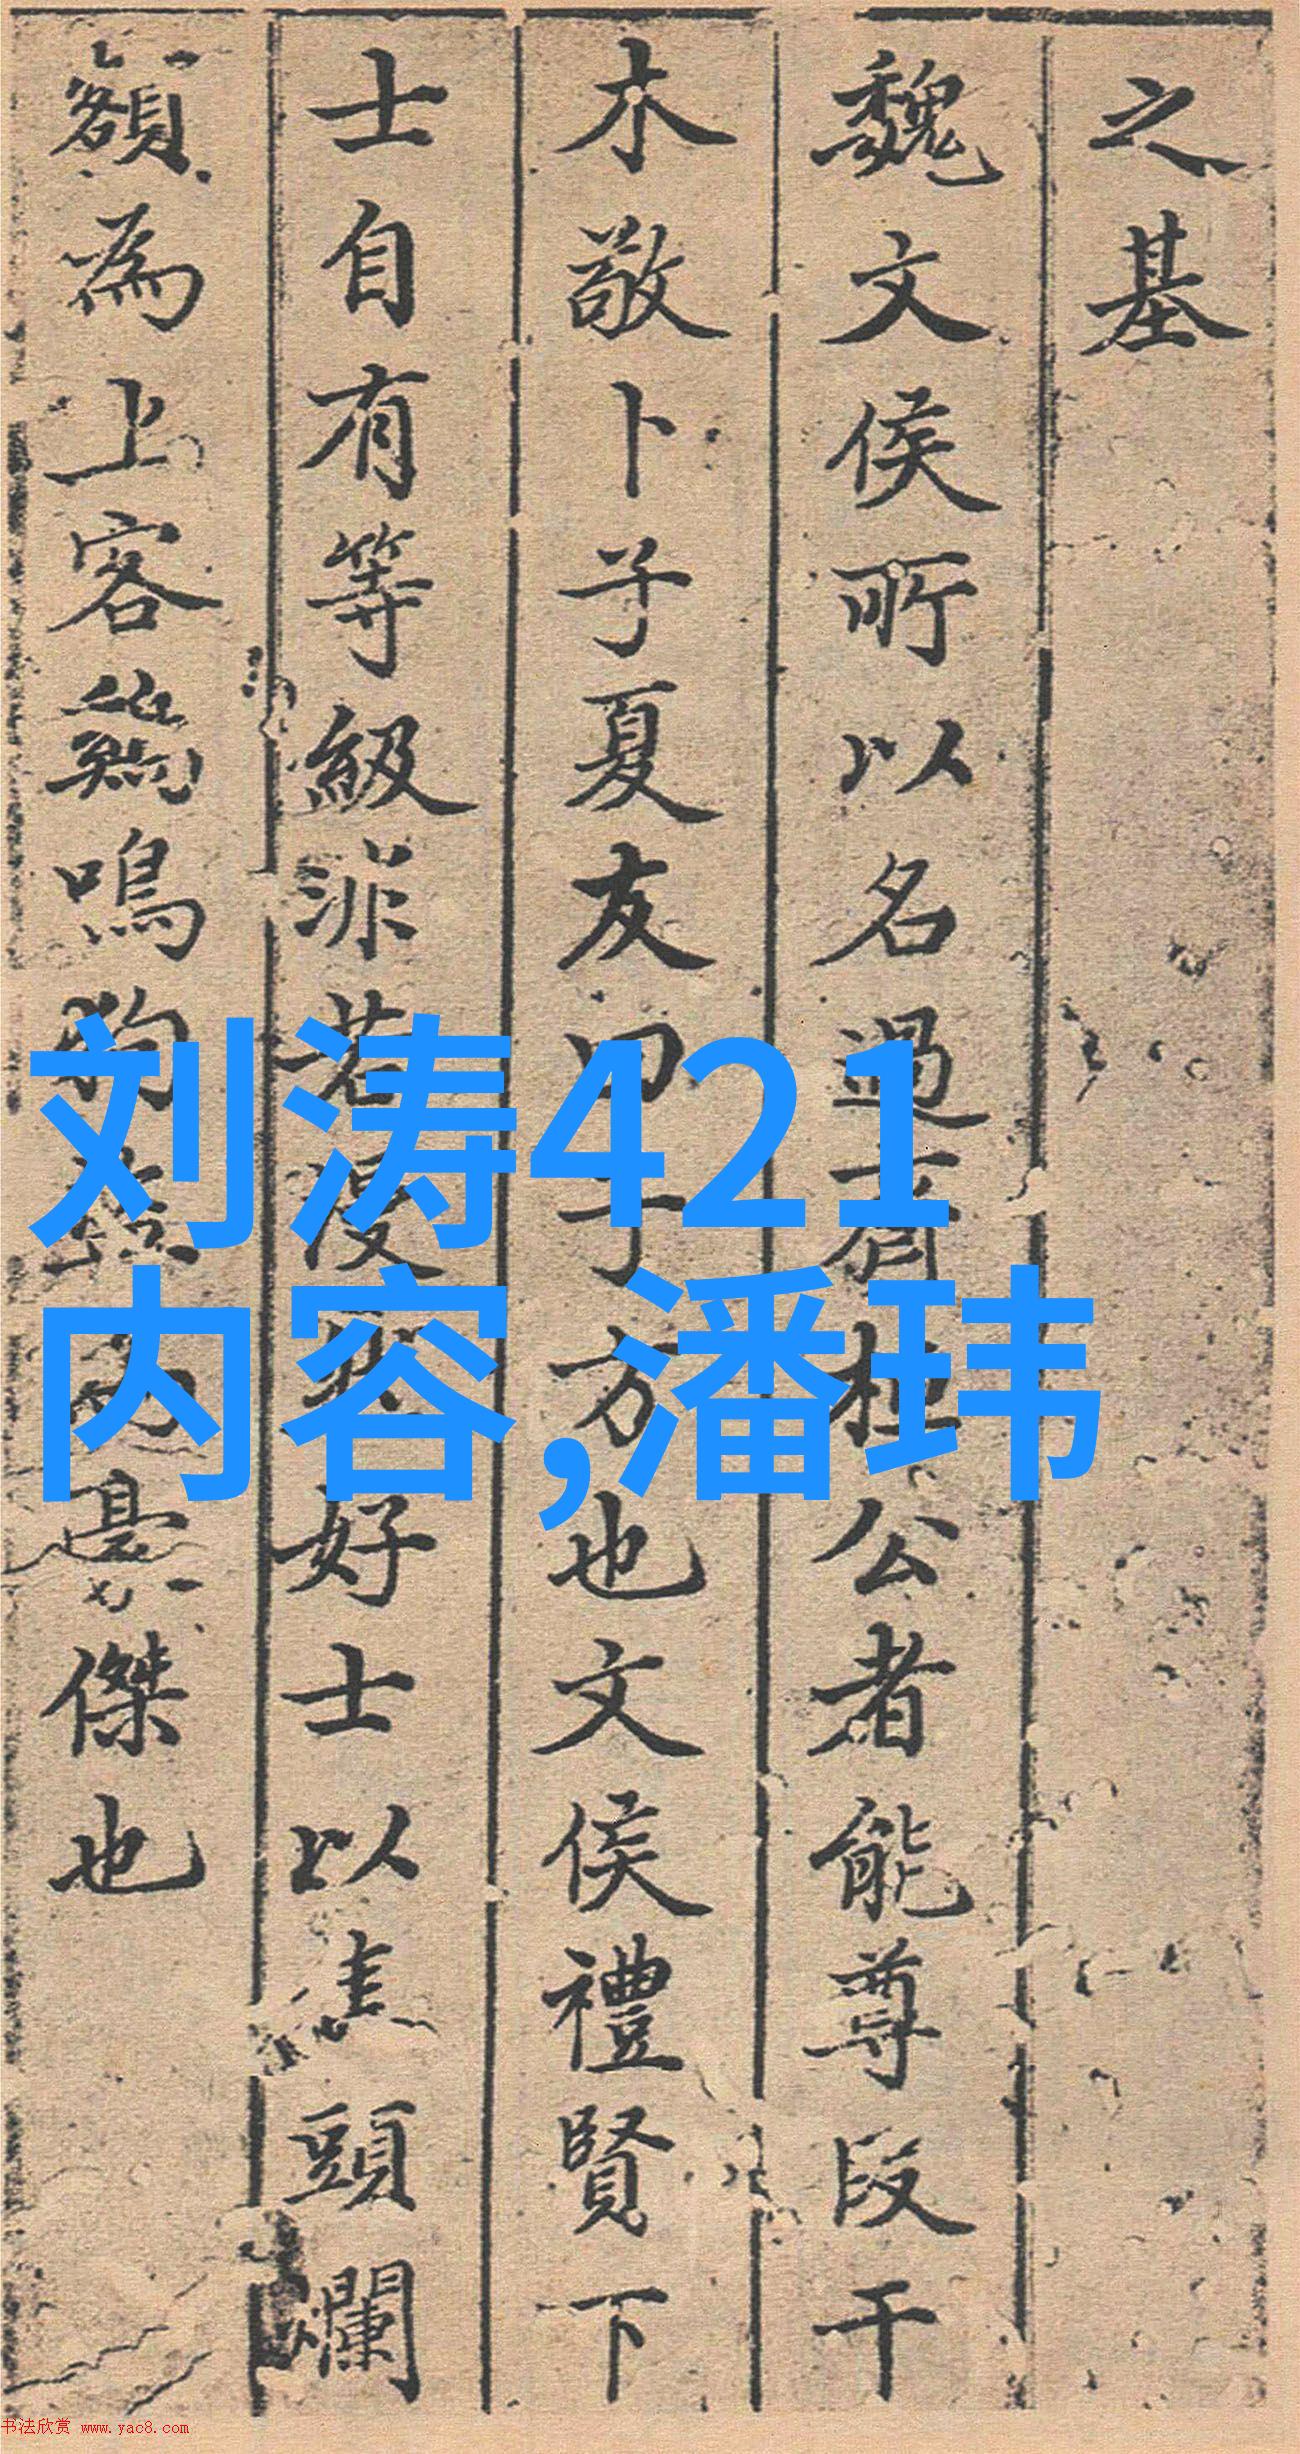 之基
魏文侯所以名過齊桓公者能尊段干
木敬卜子夏友田子方也文侯禮賢下
士自有等級非若漫然好士以焦頭爛
額為上客鷄鳴狗盜為豪傑也
刘涛421
内容,潘玮
书法欣赏 www.yac8.com